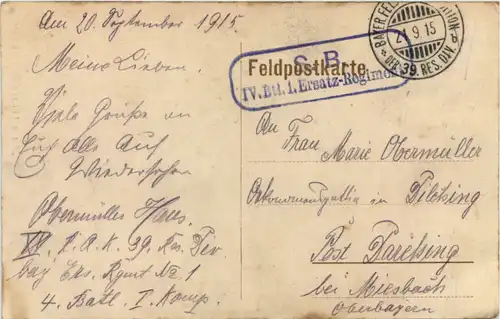 Am 20. September 1915.
Meine Lieben.
Viele Grüße an
Euch alle Auf
Wiedersehen
Obermüller Hans
39. Res. Div
bay Ers. Rgmt No 1
4. Batl. I. Komp.
S. B.
IV. Btl. 1. Ersatz-Regiment
Feldpostkarte
21.9.15
39. RES. DIV.
An
Frau Marie Obermüller
in
Post
bei Miesbach
Oberbayern